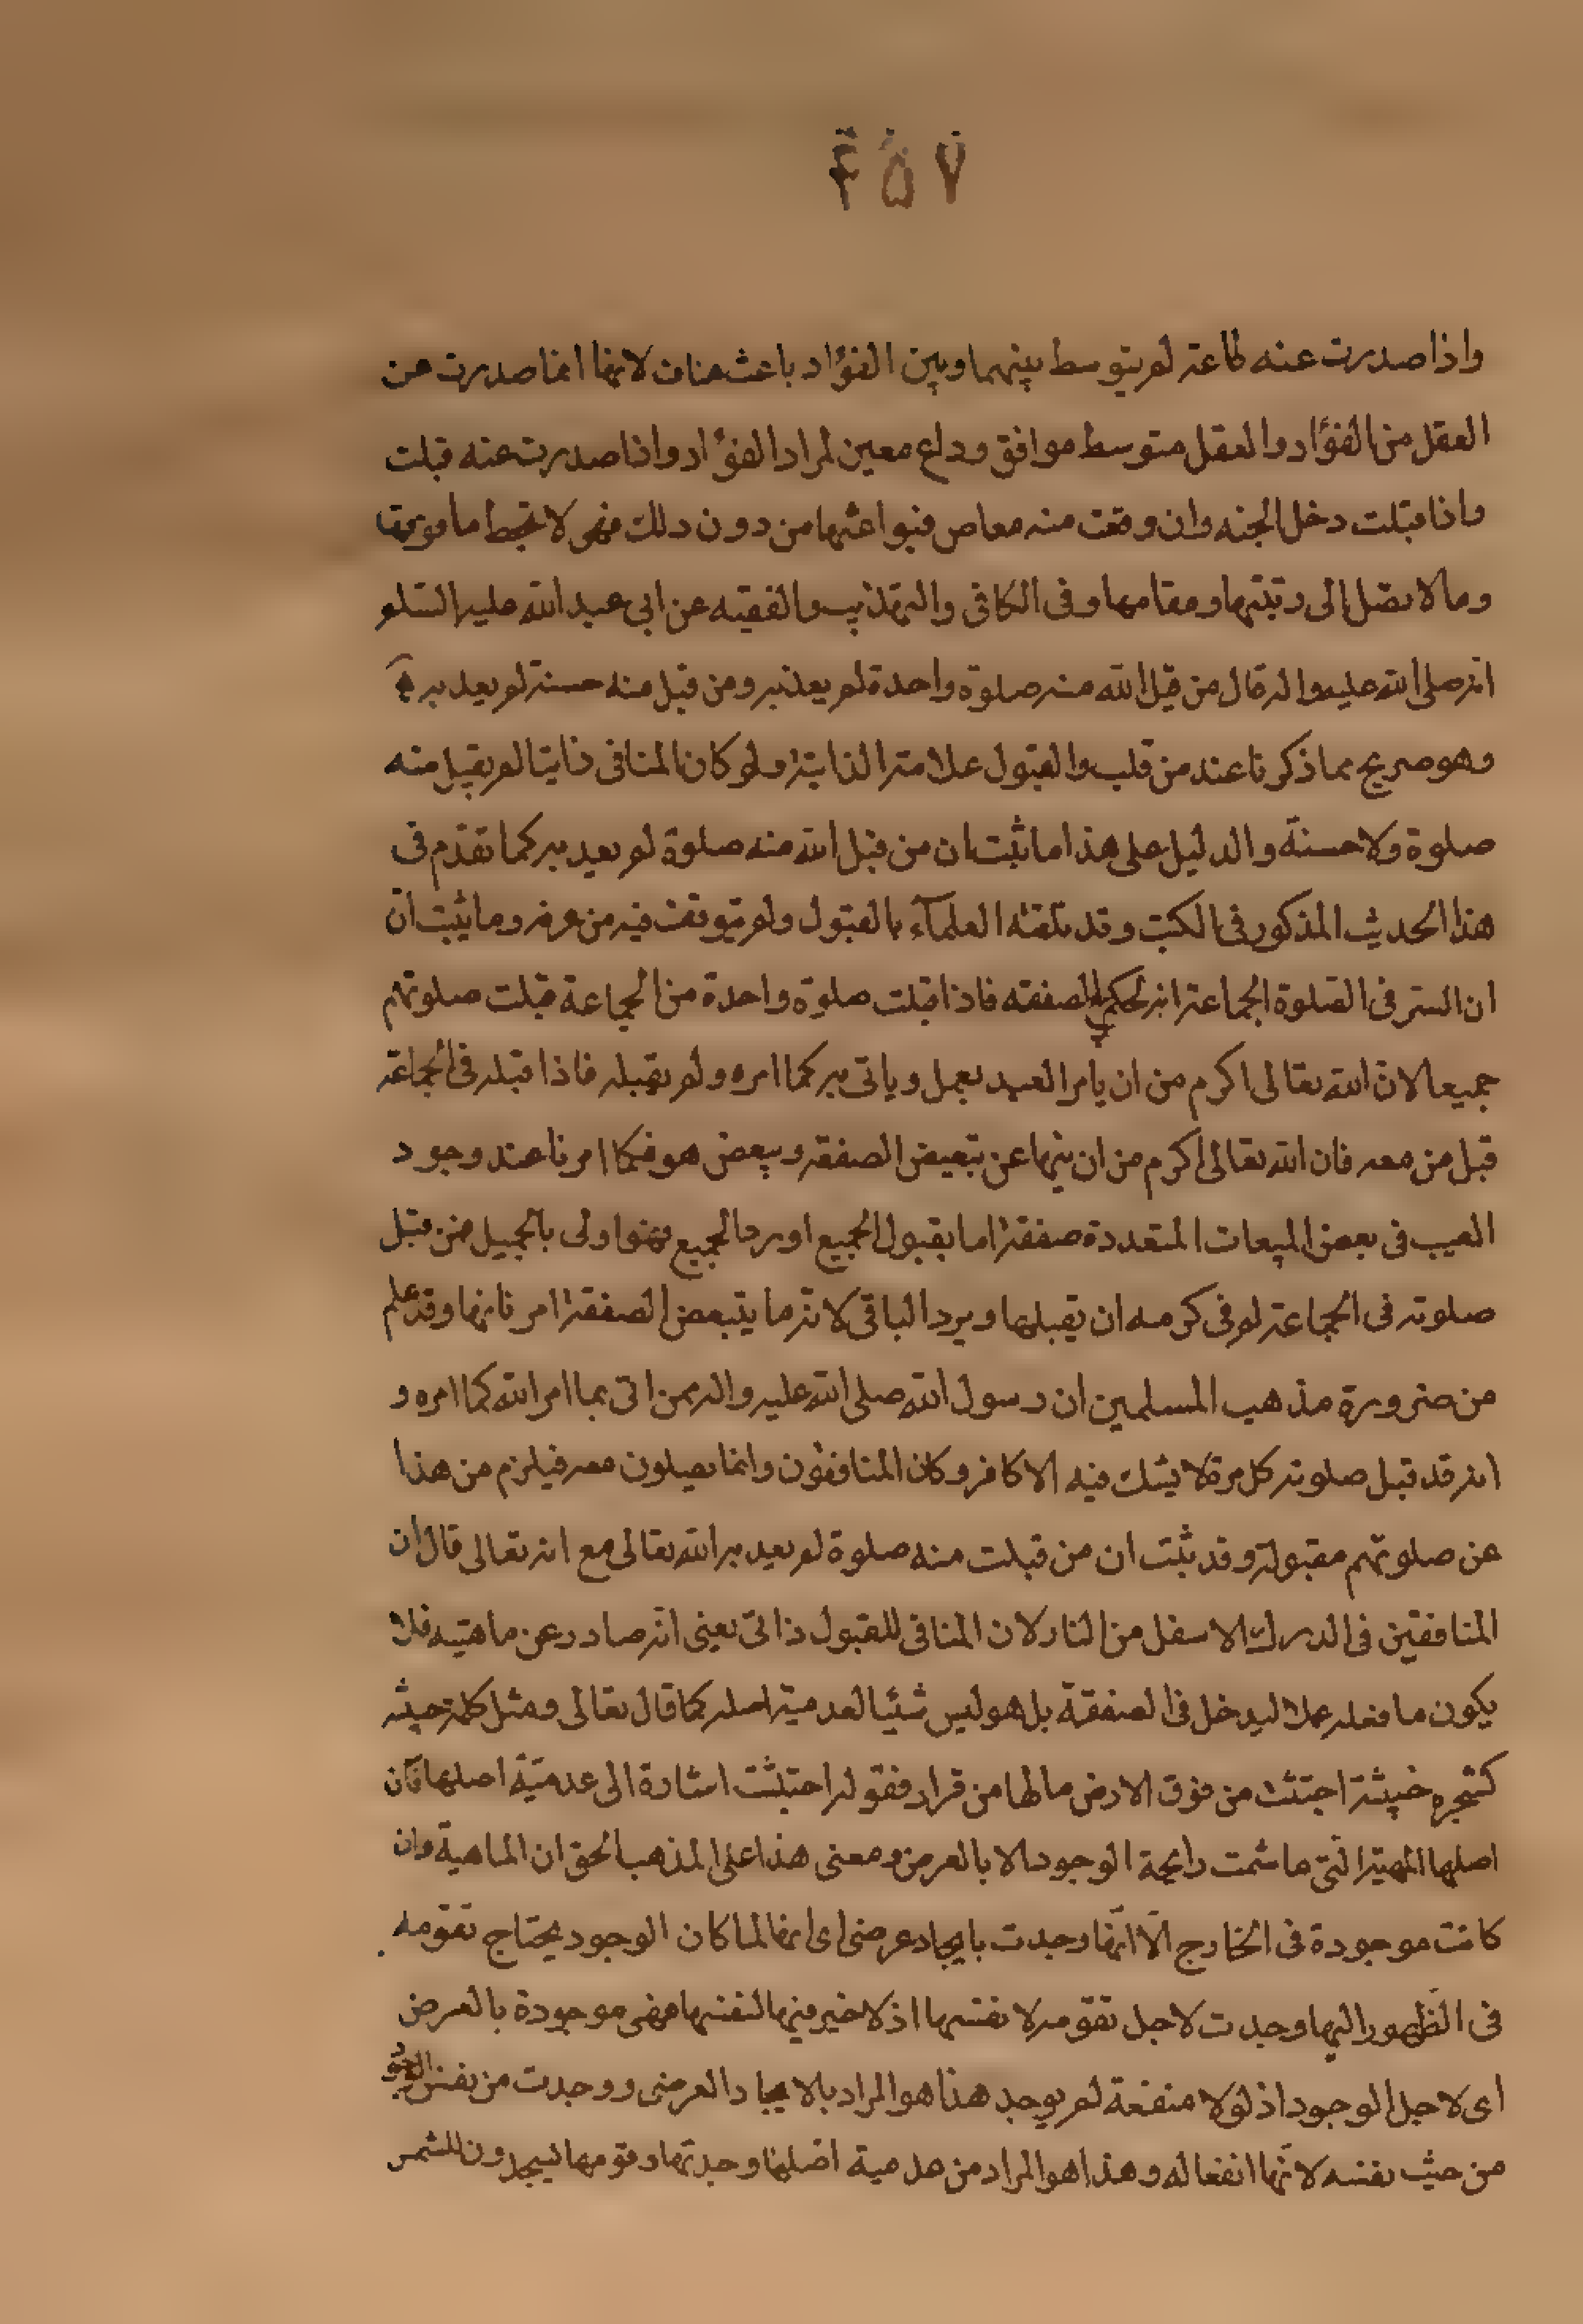 ۴۵۷
واذا صدرت عنه طاعة لم يتوسط بينهما وبين الفؤاد باعث مناف لانها انما صدرت عن
العقل من الفؤاد والعقل متوسط موافق وداع معين لمراد الفؤاد واذا صدرت عنه قبلت
واذا قبلت دخل الجنه وان وقعت منه معاص فبواعثها من دون ذلك فهى لا تحبط ما فوقها
وما لا تصل الى رتبتها ومقامها وفى الكافى والتهذيب والفقيه عن ابى عبد الله عليه السلم
انه صلى الله عليه واله قال من قبل الله منه صلوة واحدة لم يعذبه ومن قبل منه حسنة لم يعذبه
وهو صريح مما ذكرنا عند من قلب والقبول علامة الذاتية ولو كان المنافى ذاتيا لم يقبل منه
صلوة ولا حسنة والدليل على هذا ما ثبت ان من قبل الله منه صلوة لم يعذبه كما تقدم فى
هذا الحديث المذكور فى الكتب وقد تلقته العلمآء بالقبول ولم يتوقف فيه من عرفه وما يثبت ان
ان الستر فى الصلوة الجماعة انه لحكم الصفقه فاذا قبلت صلوة واحدة من الجماعة قبلت صلوتهم
جميعا لان الله تعالى اكرم من ان يامر العبد بعمل وياتى به كما امره ولم يقبله فاذا قبله فى الجماعة
قبل من معه فان الله تعالى اكرم من ان ينها عن تبعيض الصفقه ويبعض هو فكما امرنا عند وجود
العيب فى بعض المبيعات المتعددة صفقة اما بقبول الجميع او رد الجميع فهو اولى بالجميل فمن قبل
صلوته فى الجماعة لم فى كرمه ان يقبلها ويرد الباقى لانه ما يتبعض الصفقة امرنا بها وقد علم
من ضرورة مذهب المسلمين ان رسول الله صلى الله عليه واله ممن اتى بما امر الله كما امره و
انه قد قبل صلوته كل مرة لا يشك فيه الا كافر وكان المنافقون وانما يصلون معه فيلزم من هذا
عن صلوتهم مقبولة وقد ثبت ان من قبلت منه صلوة لم يعذبه الله تعالى مع انه تعالى قال ان
المنافقين فى الدرك الاسفل من النار لان المنافى للقبول ذاتى يعنى انه صادر عن ماهيته فلا
يكون ما فعله عملا ليدخل فى الصفقة بل هو ليس شيئا لعدمية اصله كما قال تعالى ومثل كلمة خبيثه
كشجره خبيثة اجتثت من فوق الارض مالها من قرار فقوله اجتثت اشارة الى عدمية اصلها فان
اصلها المهية التى ما شمت رايحة الوجود الا بالعرض ومعنى هذا على المذهب الحق ان الماهية وان
كانت موجودة فى الخارج الّا انها وجدت بايجاد عرضى اى انها لما كان الوجود يحتاج تقومه
فى الظهور اليها وجدت لاجل تقومه لا نفسها اذ لا خير فيها لنفسها فهى موجودة بالعرض
اى لاجل الوجود اذ لولا منفعة لم يوجد هذا هو المراد بالايجاد العرضى ووجدت من نفس الوجود
من حيث نفسه لانها انفعاله وهذا هو المراد من عدمية اصلها وجدتها وقومها يسجدون للشمس